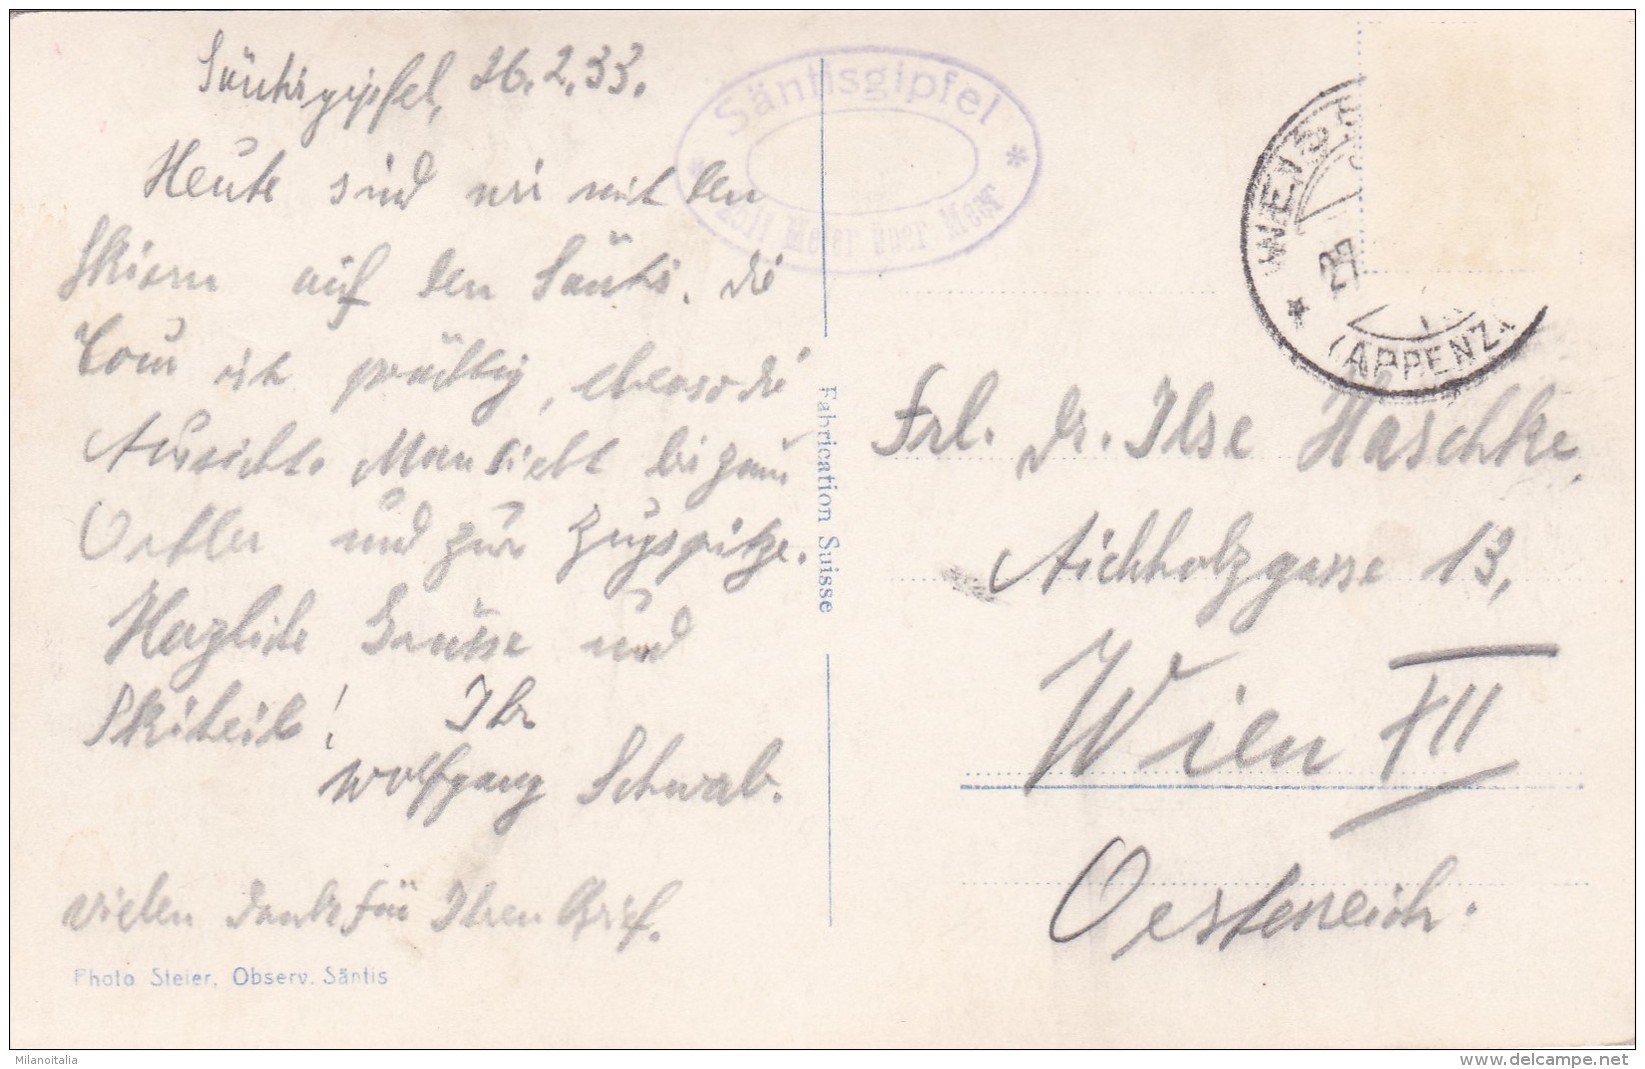 Säntisgipfel, 26.2.33.
Heute sind wir mit den
Skiern auf den Säntis. die
Tour ist prächtig, ebenso die
Aussicht. Man sieht bis zum
Ortler und zur Zugspitze.
Herzliche Grüsse und
Skiheil! Ihr
Wolfgang Schwab.
Vielen Dank für Ihren Brief.
Photo Steier, Observ. Säntis
Fabrication Suisse
* Säntisgipfel *
Meter über Meer
WEISS
27
* (APPENZ.
Frl. Dr. Ilse Haschke
Aichholzgasse 13,
Wien XII
Oesterreich.
Milanoitalia
www.delcampe.net